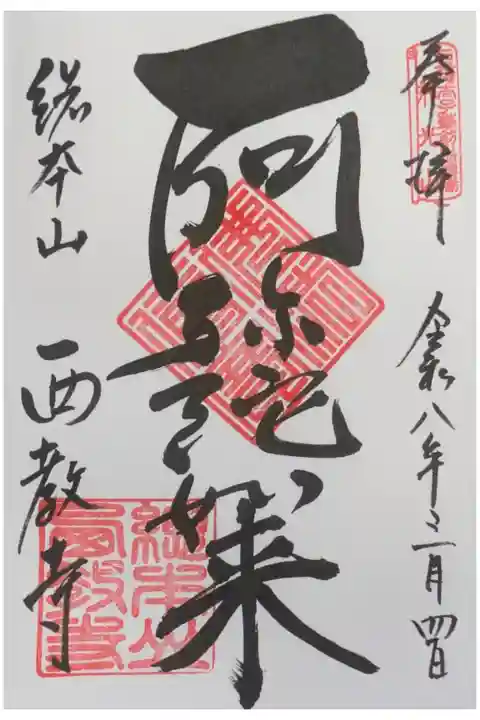 奉拝
令和八年三月四日
阿弥陀如来
総本山
西教寺
總本山
西教寺